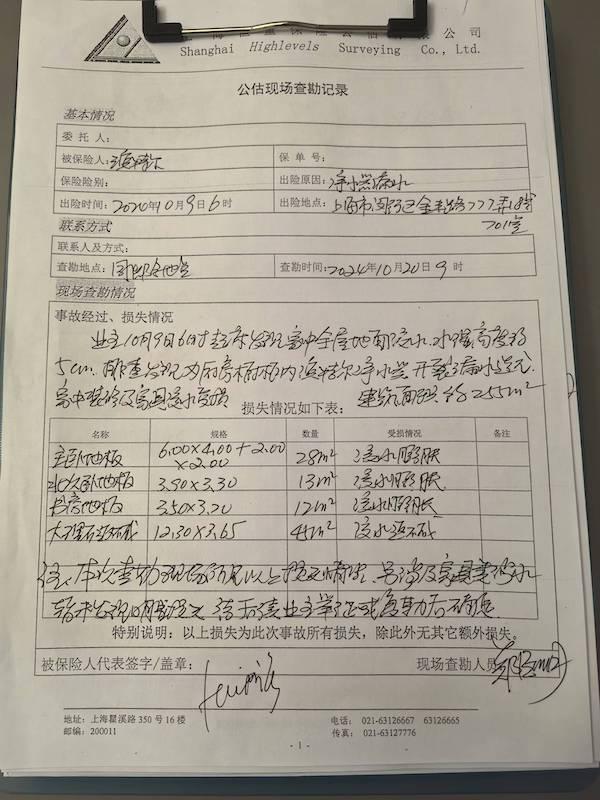 Shanghai Highlevels Surveying Co., Ltd.
公估现场查勘记录
基本情况
委托人：
被保险人： 保单号：
保险险别： 出险原因：净水器漏水
出险时间：2020年10月9日6时 出险地点：上海市闵行区金丰路777弄18号
701室
联系方式
联系人及方式：
查勘地点：同出险地点 查勘时间：2024年10月20日9时
现场查勘情况
事故经过、损失情况
业主10月9日6时起床发现家中全屋地面积水，水渍高度约
5cm.排查发现为厨房橱柜内净水器开裂漏水造成
家中装修及家具浸水受损 建筑面积约255m²
损失情况如下表：
名称 规格 数量 受损情况 备注
主卧地板 6.00×4.00+2.00×2.00 28m² 浸水膨胀
北次卧地板 3.90×3.30 13m² 浸水膨胀
书房地板 3.50×3.20 12m² 浸水膨胀
大理石返碱 12.30×3.65 45m² 浸水返碱
注：本次查勘现场所见以上损失情况，另涉及家具
特别说明：以上损失为此次事故所有损失，除此外无其它额外损失。
被保险人代表签字/盖章： 现场查勘人员
地址：上海瞿溪路350号16楼 电话： 021-63126667 63126665
邮编：200011 传真： 021-63127776
- 1 -